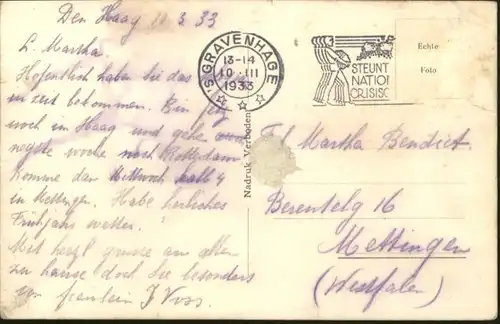 Den Haag 11.3.33
L. Martha
Hofentlich haben Sie das
in zeit bekommen. Bin jetz
noch im Haag und gehe
negste woche nach Rotterdam
Komme dan Mittwoch halb 4
in Mettingen. Habe herliches
Frühjahrs wetter.
Mit herzl grusse an allen
zu hause doch Sie besonders
von fraulein J Voss.
'S GRAVENHAGE
13-14
10 III
1933
STEUNT
NATION
CRISISC
Echte
Foto
Nadruk Verboden
Frl Martha Bendict
Berentelg 16
Mettingen
(Westfalen)